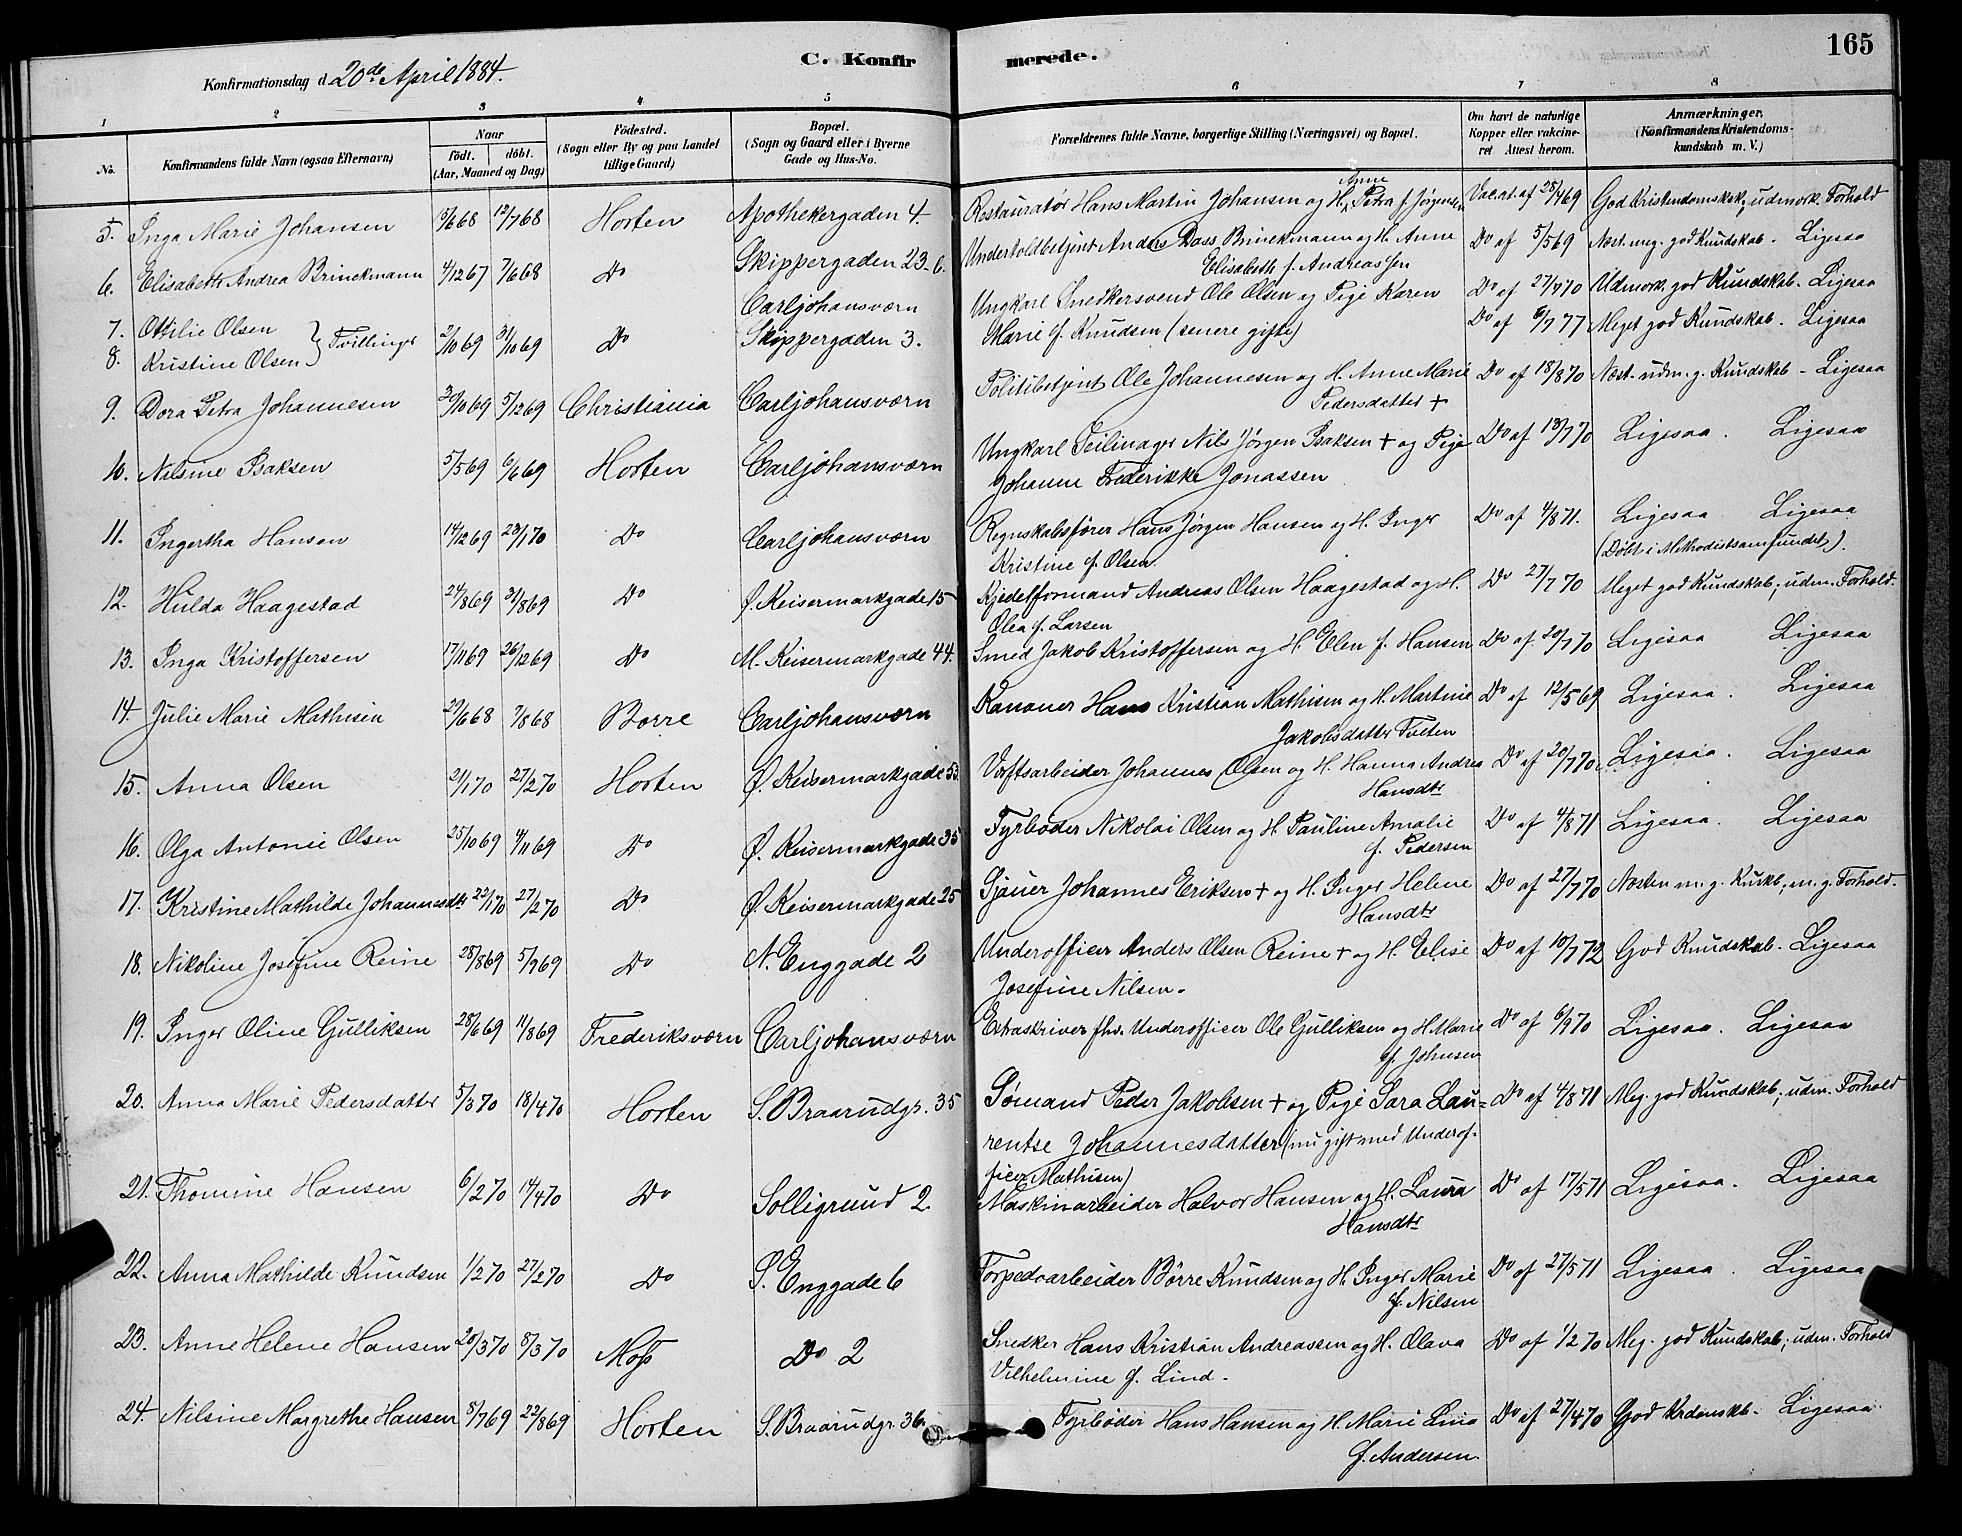 C. Konfirmerede.
165
Konfirmationsdag d. 20de April 1884.
1 2 3 4 5 6 7 8
No. Konfirmandens fulde Navn (ogsaa Efternavn) Naar født. døbt. (Aar, Maaned og Dag) Fødested. (Sogn eller By og paa Landet tillige Gaard) Bopæl. (Sogn og Gaard eller i Byerne Gade og Hus-No. Forældrenes fulde Navne, borgerlige Stilling (Næringsvei) og Bopæl. Om havt de naturlige Kopper eller vakcineret Attest herom. Anmærkninger. (Konfirmandens Kristendomskundskab m. V.)
5. Inga Marie Johansen 15/6 68 12/7 68 Horten Apothekergaden 4. Restauratør Hans Martin Johansen og H. Anne Petra f. Jørgensen Vac. at. af 28/4 69 God Kristendomsksk., udmærk. Forhold
6. Elisabeth Andrea Brinckmann 4/12 67 7/6 68 Do Skippergaden 23.6. Undertoldbetjent Anders Dass Brinckmann og H. Anne Do af 5/5 69 Næst. meg. god Kundskab. Ligesaa
Elisabeth f. Andreassen
7. Ottilie Olsen } Tvillinger 2/10 69 31/10 69 Do Carljohansværn Ungkarl Snedkersvend Ole Olsen og Pige Karen Do af 27/7 70 Udmærk. god Kundskab. Ligesaa
8. Kristine Olsen } Skippergaden 3. Marie f. Knudsen (senere gifte) Do af 6/7 77 Meget god Kundskab. Ligesaa
9. Dora Petra Johannesen 30/10 69 5/12 69 Christiania Carljohansværn Politibetjent Ole Johannesen og H. Anne Marie Do af 18/8 70 Næst. udm. g. Kundskab - Ligesaa
Pedersdatter +
10. Nilsine Isaksen 5/5 69 6/6 69 Horten Carljohansværn Ungkarl Seilmager Nils Jørgen Isaksen + og Pige Do af 13/7 70 Ligesaa. Ligesaa
Johanne Frederikke Jonassen
11. Ingertha Hansen 14/12 69 23/1 70 Do Carljohansværn Regnskabsfører Hans Jørgen Hansen og H. Inger Do af 4/8 71. Ligesaa Ligesaa
Kristine f. Olsen. (Døbt i Methodistsamfundet).
12. Hulda Haagestad 24/8 69 31/8 69 Do Ø. Keisermarkgade 15 Kjedelformand Andreas Olsen Haagestad og H. Do 27/7 70 Meget god Kundskab; udm. Forhold.
Olea f. Larsen
13. Inga Kristoffersen 17/11 69 26/12 69 Do M. Keisermarkgade 44. Smed Jakob Kristoffersen og H. Elen f. Hansen Do af 20/7 70 Ligesaa Ligesaa
14. Julie Marie Mathisen 29/6 68 7/8 68 Borre Carljohansværn Kanoner Hans Kristian Mathisen og H. Martine Do af 12/5 69 Ligesaa. Ligesaa
Jakobsdatter Tveten
15. Anna Olsen 21/1 70 27/2 70 Horten Ø. Keisermarkgade 53. Verftsarbeider Johannes Olsen og H. Hanna Andrea Do af 20/7 70. Ligesaa. Ligesaa
Hansdtr
16. Olga Antonie Olsen 25/10 69 4/11 69 Do Ø. Keisermarkgade 35 Fyrbøder Nikolai Olsen og H. Pauline Amalie Do af 4/8 71 Ligesaa. Ligesaa
f. Pedersen
17. Kristine Mathilde Johannesdtr 22/1 70 27/2 70 Do Ø. Keisermarkgade 25 Sjauer Johannes Eriksen + og H. Inger Helene Do af 27/7 70 Næsten m. g. Kuskb., m. g. Forhold.
Hansdtr
18. Nikoline Josefine Reine 28/8 69 5/9 69 Do N. Enggade 2 Underofficer Anders Olsen Reine + og H. Elise Do af 10/7 72 God Kundskab. Ligesaa
Josefine Nilsen.
19. Inger Oline Gulliksen 28/6 69 11/8 69 Frederiksværn Carljohansværn Extraskriver fhv. Underofficer Ole Gulliksen og H. Marie Do af 6/9 70 Ligesaa. Ligesaa
f. Johnsen
20. Anna Marie Pedersdatter 5/3 70 18/4 70 Horten S. Braarudgr. 35 Sømand Peder Jakobsen + og Pige Sara Lau- Do af 4/8 71 Meg. god Kundskab; udm. Forhold
rentse Johannesdatter (nu gift med Underof-
ficer Mathisen)
21. Thomine Hansen 6/2 70 14/4 70 Do Solligrund 2. Maskinarbeider Halvor Hansen og H. Laura Do af 17/5 71 Ligesaa. Ligesaa
Hansdtr
22. Anna Mathilde Knudsen 1/2 70 27/2 70 Do S. Enggade 6 Torpedoarbeider Børre Knudsen og H. Inger Marie Do af 27/5 71 Ligesaa. Ligesaa
f. Nilsen
23. Anne Helene Hansen 20/3 70 8/3 70 Moss Do 2 Snedker Hans Kristian Andreassen og H. Olava Do af 1/2 70 Meg. god Kundskab; udm. Forhold
Vilhelmine f. Lind.
24. Nilsine Margrethe Hansen 8/7 69 22/8 69 Horten S. Braarudgr. 36. Fyrbøder Hans Hansen og H. Marie Lina Do af 27/4 70 God Krdomskb. Ligesaa
f. Andersen.